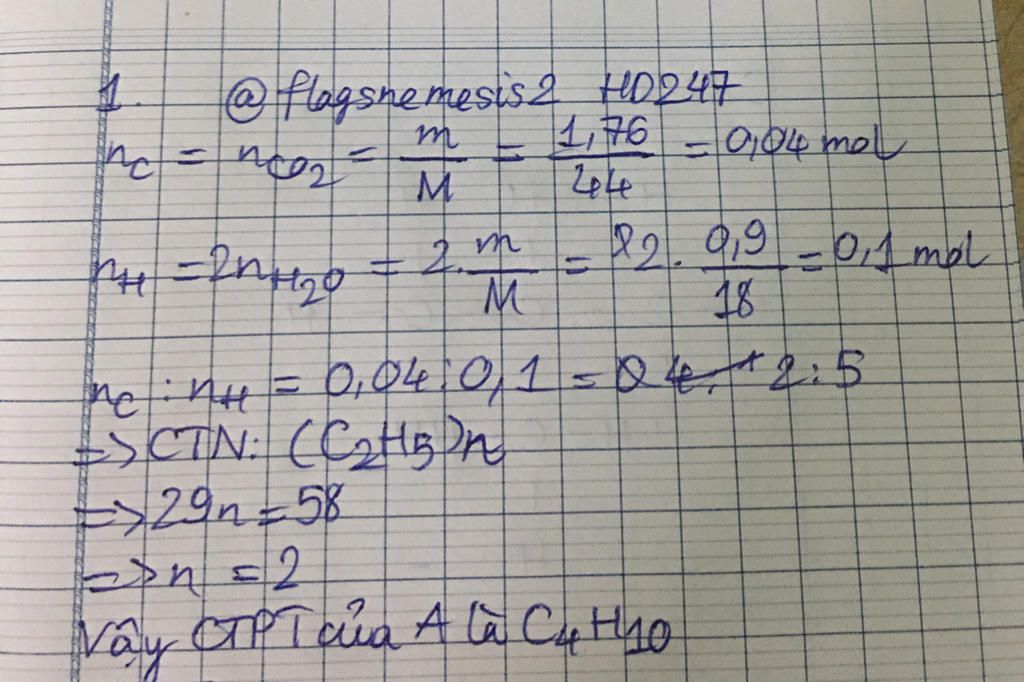 1. @flagsnemesis2 HD247
nC = nCO2 = m/M = 1,76/44 = 0,04 mol
nH = 2nH2O = 2. m/M = 2. 0,9/18 = 0,1 mol
nC : nH = 0,04 : 0,1 = 2 : 5
=> CTN: (C2H5)n
=> 29n = 58
=> n = 2
Vậy CTPT của A là C4H10